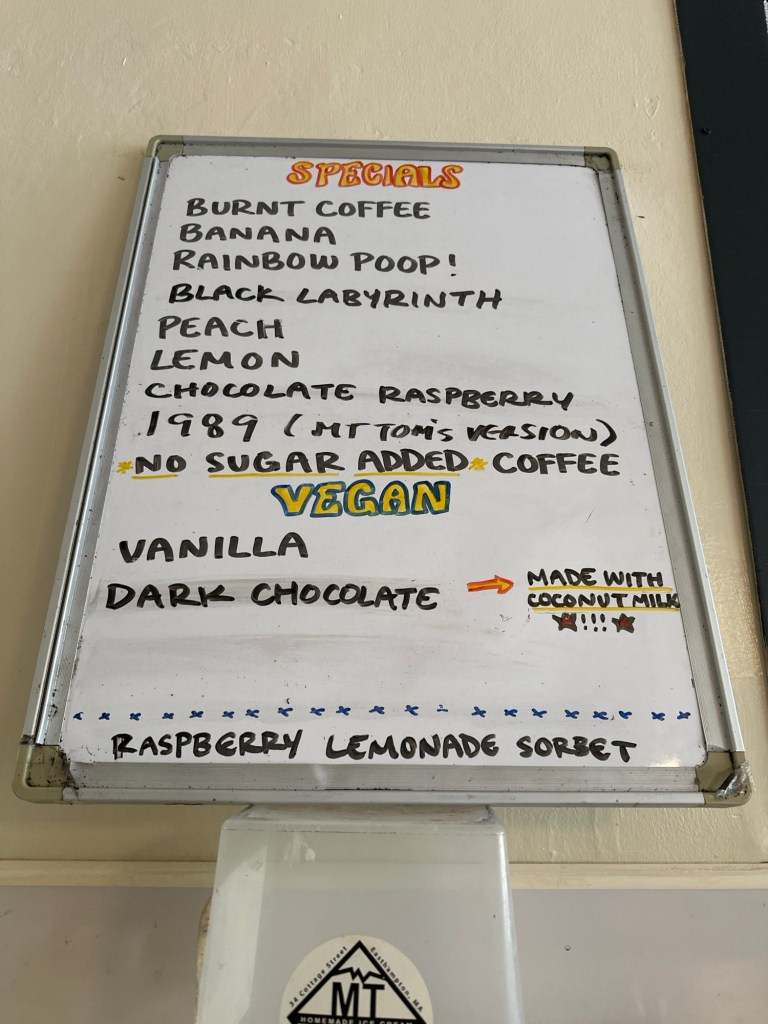 SPECIALS
BURNT COFFEE
BANANA
RAINBOW POOP!
BLACK LABYRINTH
PEACH
LEMON
CHOCOLATE RASPBERRY
1989 (MT TOM'S VERSION)
*NO SUGAR ADDED* COFFEE
VEGAN
VANILLA
DARK CHOCOLATE → MADE WITH
COCONUT MILK
★!!!★
RASPBERRY LEMONADE SORBET
34 Cottage Street Easthampton, MA
MT
HOMEMADE ICE CREAM